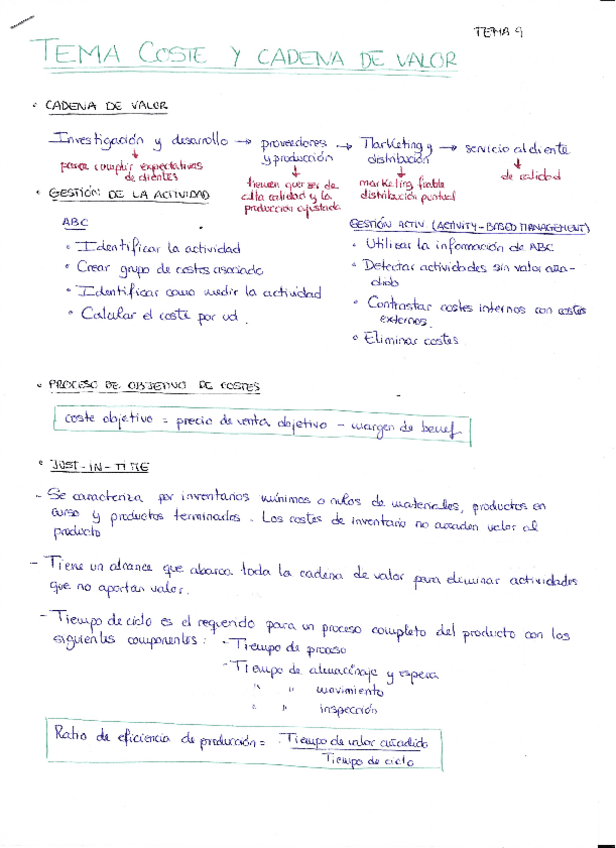 TEMA 9
TEMA COSTE Y CADENA DE VALOR
• CADENA DE VALOR
Investigación y desarrollo → proveedores y producción → Marketing y distribución → servicio al cliente
para cumplir expectativas de clientes
tienen que ser de alta calidad y la producción ajustada
marketing fiable distribución puntual
de calidad
• GESTIÓN DE LA ACTIVIDAD
ABC
• Identificar la actividad
• Crear grupo de costes asociado
• Identificar como medir la actividad
• Calcular el coste por ud.
GESTIÓN ACTIV. (ACTIVITY-BASED MANAGEMENT)
• Utilizar la información de ABC
• Detectar actividades sin valor aña-
dido
• Contrastar costes internos con costes
externos.
• Eliminar costes
• PROCESO DE OBJETIVO DE COSTES
coste objetivo = precio de venta objetivo - margen de benef
• JUST-IN-TIME
- Se caracteriza por inventarios mínimos o nulos de materiales, productos en
curso y productos terminados. Los costes de inventario no añaden valor al
producto
- Tiene un alcance que abarca toda la cadena de valor para eliminar actividades
que no aportan valor.
- Tiempo de ciclo es el requerido para un proceso completo del producto con los
siguientes componentes: - Tiempo de proceso
- Tiempo de almacenaje y espera
" " movimiento
" " inspección
Ratio de eficiencia de producción = Tiempo de valor añadido
Tiempo de ciclo